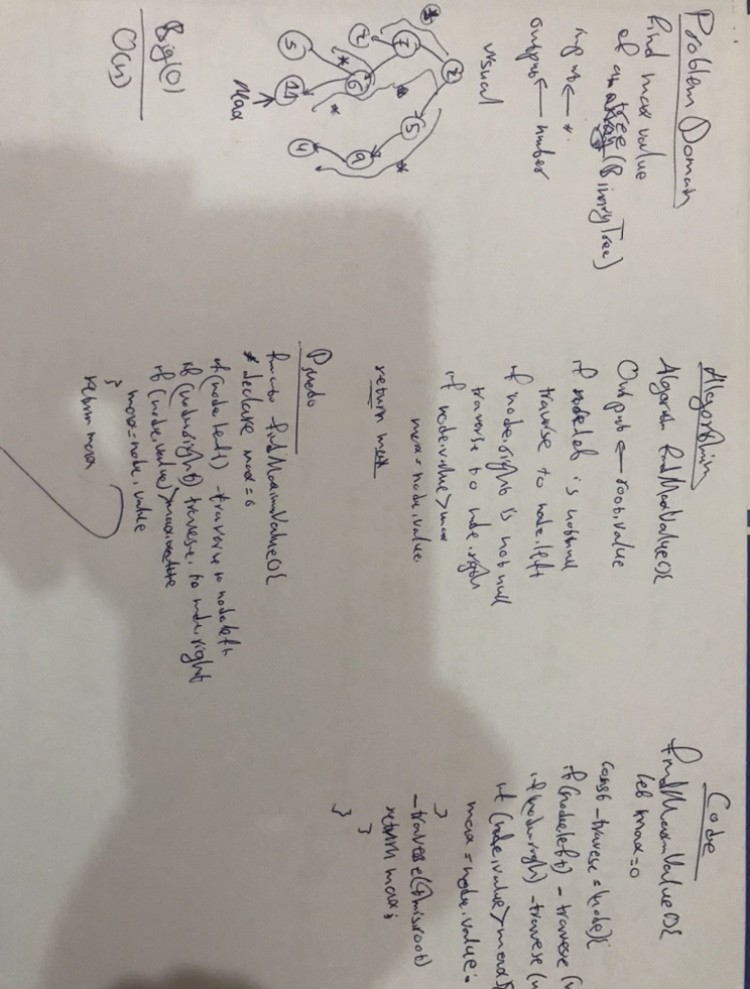 Problem Domain
Find max value
of a tree (BinaryTree)
input ← *
output ← number
visual
2
7
5
2
6
9
5
11
4
Max
Big(O)
O(n)
Algorithim
Algorithm findMaxValue(){
Output ← root.value
if node.left is not null
traverse to node.left
if node.right is not null
traverse to node.right
if node.value > max
max = node.value
return max
Psuedo
function findMaximumValue(){
declare max = 0
if (node left) - traverse to node left
if (node.right) traverse to node.right
if (node.value) > max.value
max = node.value
}
return max
Code
findMaximValue(){
let max=0
const _travese = (node){
if (node.left) _travese (
if (node.righ) _travese (
if (node.value > max){
max = node.value;
}
_travese(this.root)
return max;
}
}